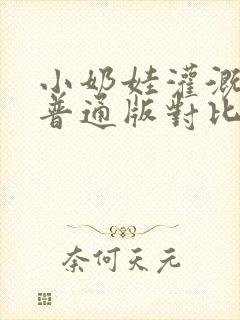 小奶娃灌溉
普通版對比
奈何天元